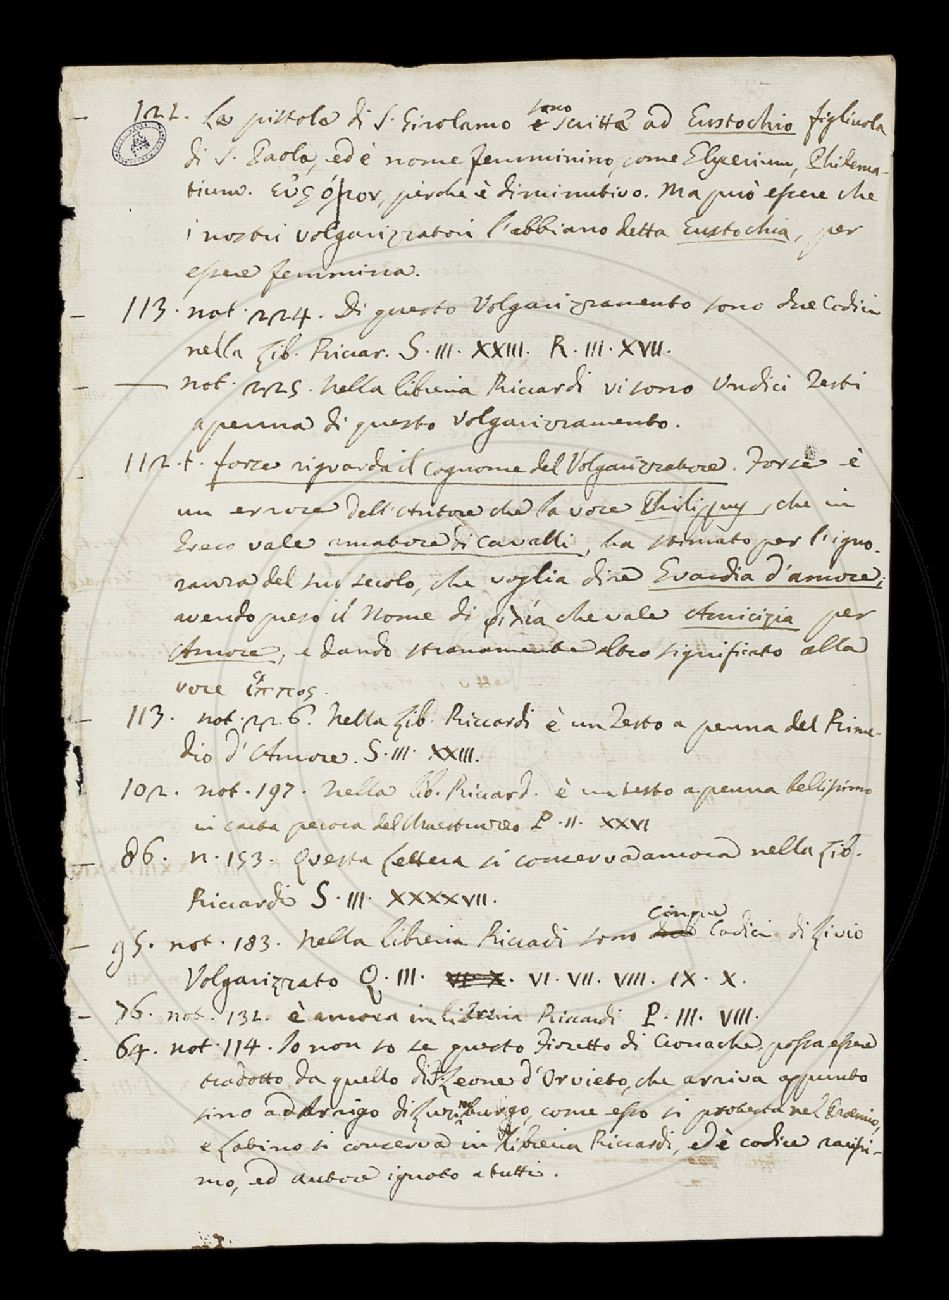 122. Le pistole di S. Girolamo sono scritte ad Eustochio figliuola
di S. Paola, ed è nome femminino, come Glycerium, Philema-
tium. perchè è diminutivo. Ma può essere che
i nostri volgarizzatori l'abbiano detta Eustochia, per
essere femmina.
113. not. 224. Di questo Volgarizzamento sono due Codici
nella Lib. Riccar. S. III. XXIII. R. III. XVII.
not. 225. Nella libreria Riccardi vi sono Undici Testi
a penna di questo Volgarizzamento.
112. t. forse riguarda il cognome del Volgarizzatore. Forse è
un errore dell'Autore che la voce Philippus, che in
Greco vale amatore di cavalli, ha stimato per l'igno-
ranza del suo secolo, che voglia dire Guardia d'amore;
avendo preso il Nome di φιλία che vale Amicizia per
Amore, e dando stranamente altro significato alla
voce ἵππος.
113. not. 226. Nella Lib. Riccardi è un Testo a penna del Rime-
dio d'Amore. S. III. XXIII.
102. not. 197. Nella Lib. Riccard. è un testo a penna bellissimo
in carta pecora del Maestruzzo P. II. XXVI
86. n. 153. Questa Lettera si conserva ancora nella Lib.
Riccardi S. III. XXXXVII.
95. not. 183. Nella libreria Riccardi sono cinque Codici di Livio
Volgarizzato Q. III. VI. VII. VIII. IX. X.
76. not. 132. è ancora in libreria Riccardi P. III. VIII.
64. not. 114. Io non so se questo Fioretto di Cronache possa essere
tradotto da quello di Leone d'Orvieto, che arriva appunto
sino ad Arrigo di Luzimburgo, come esso si protesta nel Proemio,
e Latino si conserva in libreria Riccardi, ed è codice rarissi-
mo, ed autore ignoto a tutti.